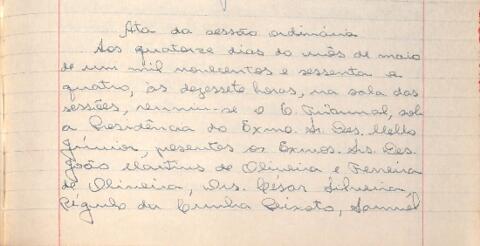 Ata da sessão ordinária
Aos quatorze dias do mês de maio
de um mil novecentos e sessenta e
quatro, às dezessete horas, na sala das
sessões, reuniu-se o E. Tribunal, sob
a Presidência do Exmo. Sr. Des. Mello
Júnior, presentes os Exmos. Srs. Des.
João Martins de Oliveira e Ferreira
de Oliveira, Drs. Cesar Silveira,
Régulo da Cunha Peixoto, Samuel